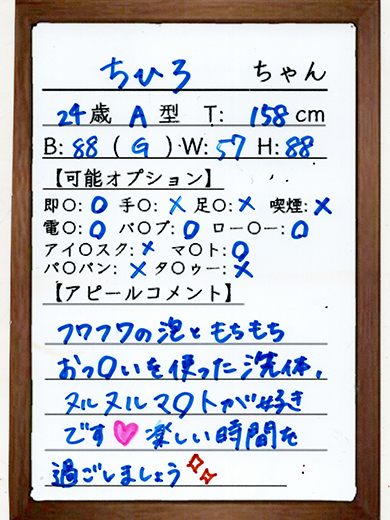 ちひろ ちゃん
24歳 A型 T: 158cm
B: 88 ( G ) W: 57 H: 88
【可能オプション】
即〇: O 手〇: × 足〇: × 喫煙: ×
電〇: O バ〇ブ: O ロー〇ー: O
アイ〇スク: × マ〇ト: O
パ〇パン: × タ〇ゥー: ×
【アピールコメント】
フワフワの泡ともちもち
おっ〇いを使った洗体、
ヌルヌルマ〇トが好き
です♥楽しい時間を
過ごしましょう